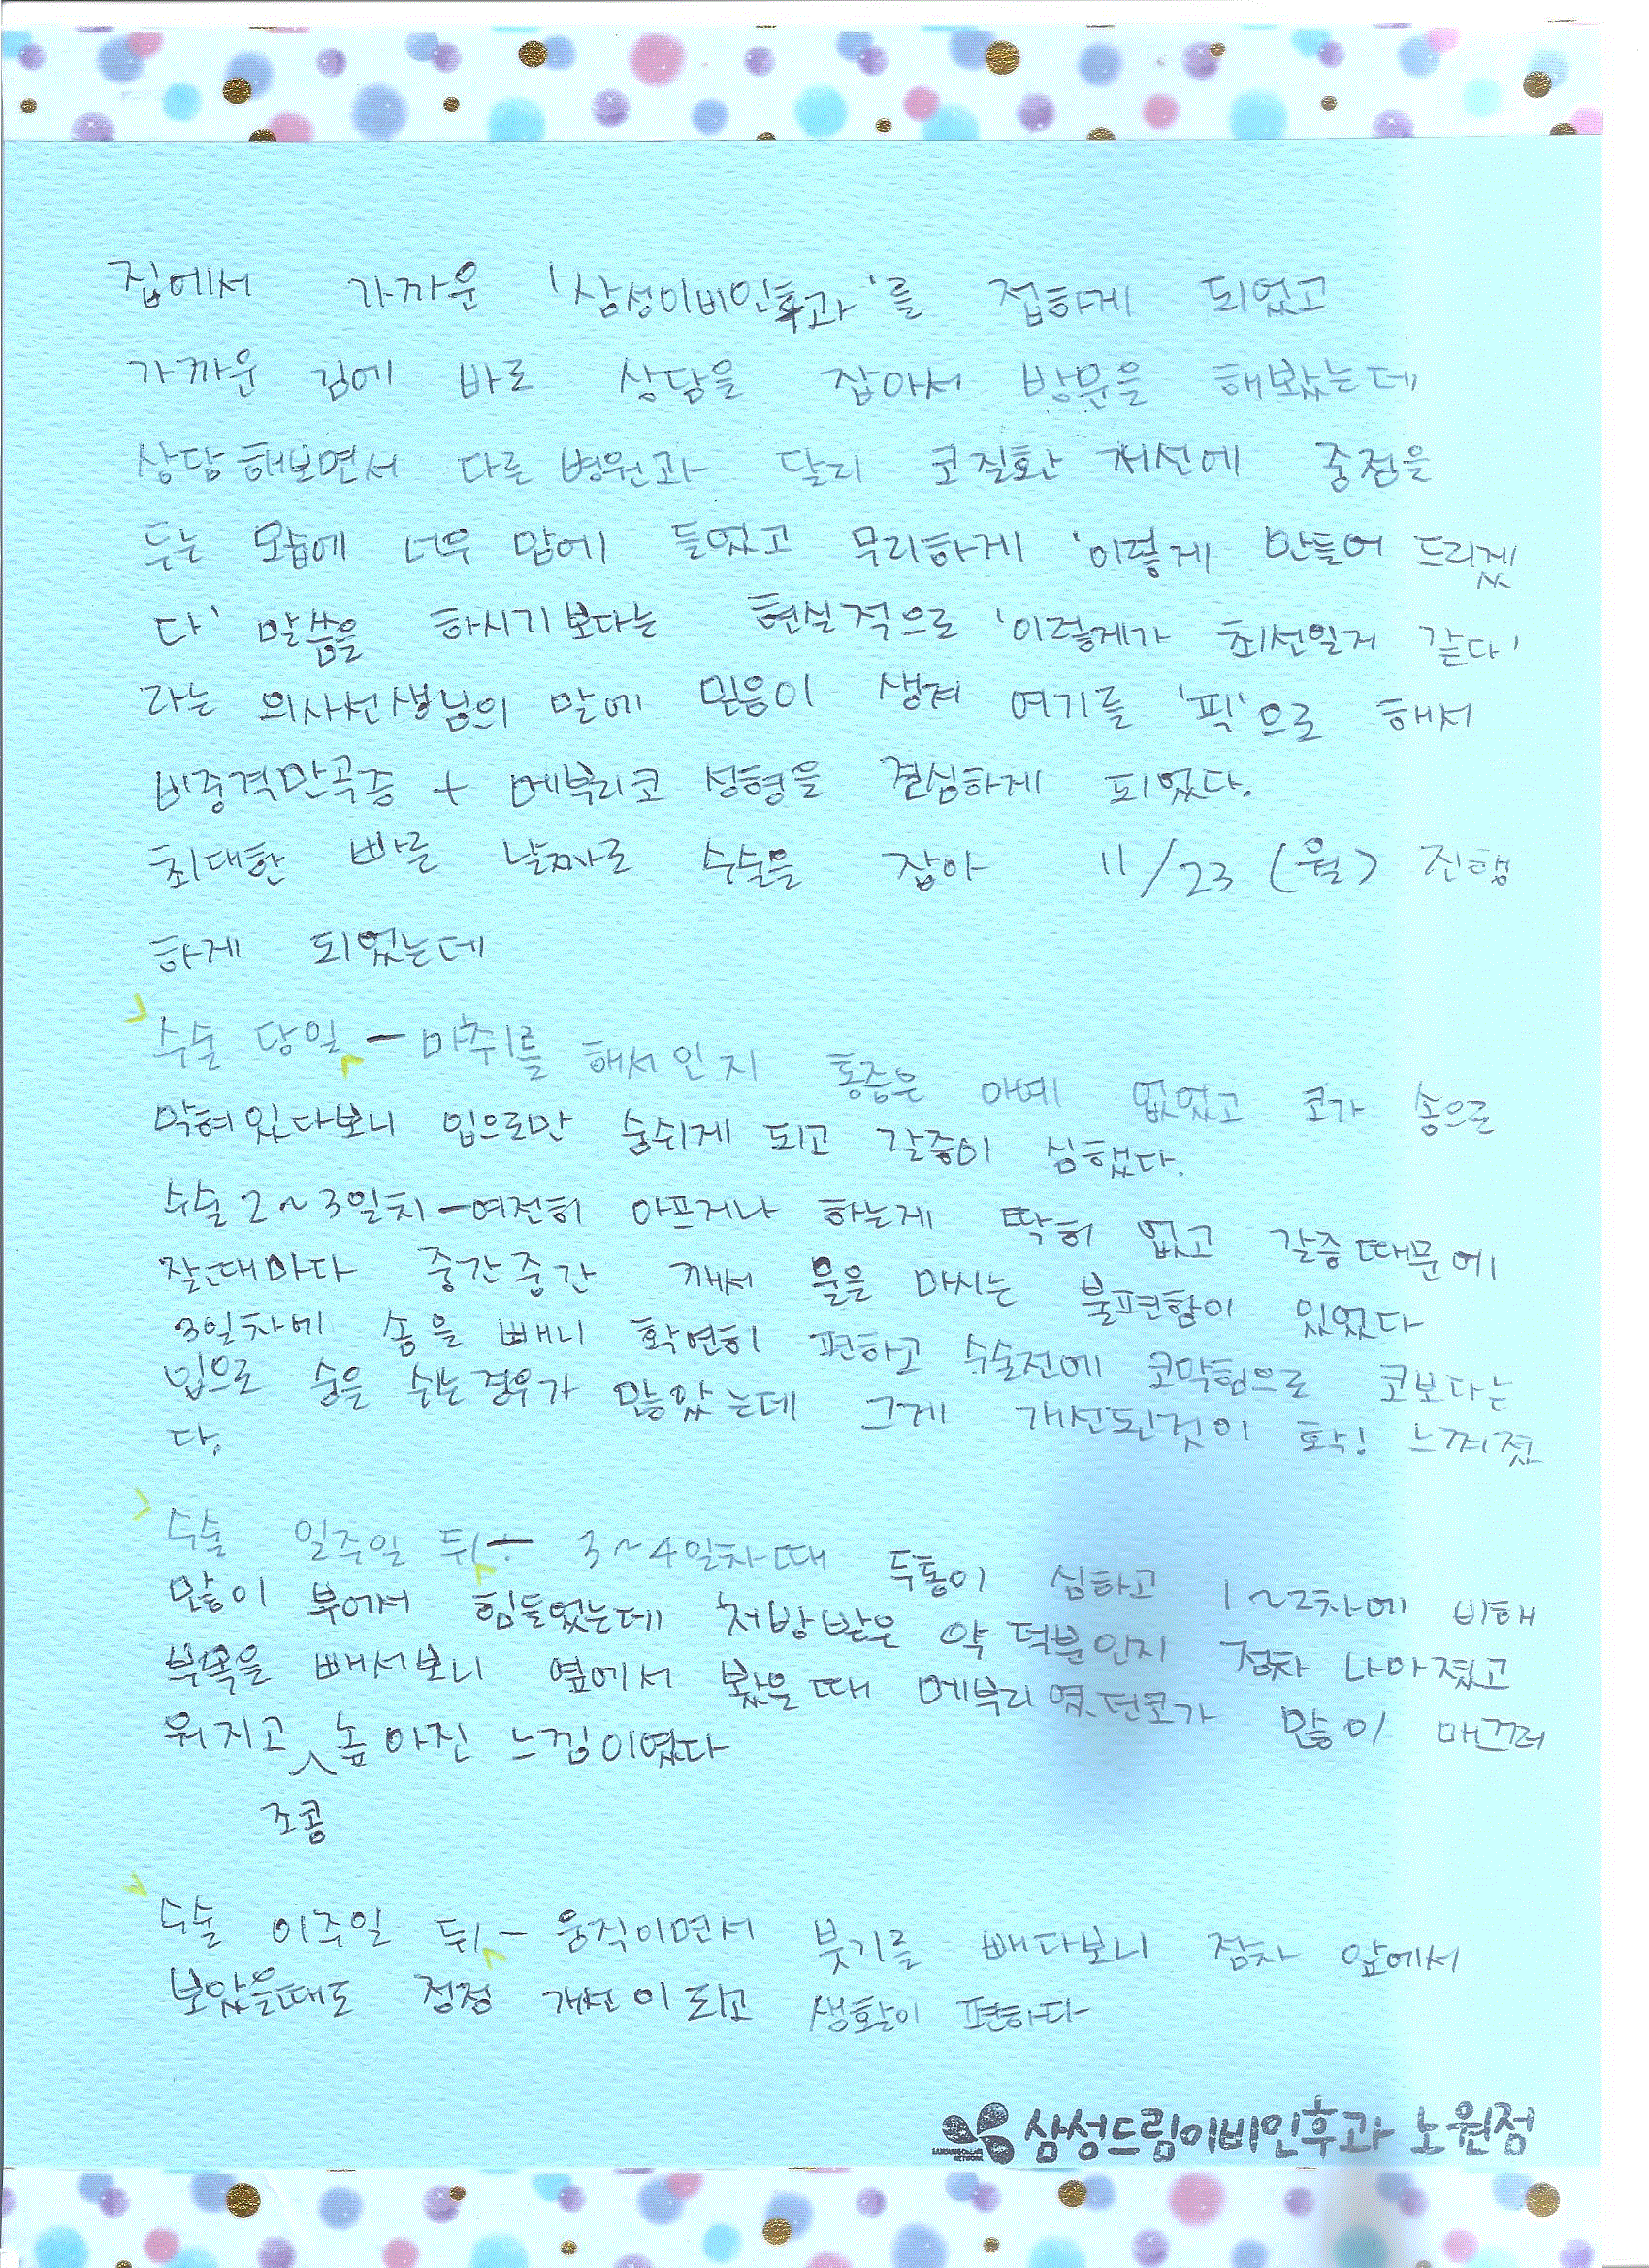 집에서 가까운 '삼성이비인후과'를 접하게 되었고
가까운 김에 바로 상담을 잡아서 방문을 해봤는데
상담해보면서 다른 병원과 달리 코질환 개선에 중점을
두는 모습에 너무 맘에 들었고 무리하게 '이렇게 만들어 드리겠
다' 말씀을 하시기보다는 현실적으로 '이렇게가 최선일거 같다'
라는 의사선생님의 말에 믿음이 생겨 여기를 '픽'으로 해서
비중격만곡증 + 메부리코 성형을 결심하게 되었다.
최대한 빠른 날짜로 수술을 잡아 11/23 (월) 진행
하게 되었는데
수술 당일 - 마취를 해서인지 통증은 아예 없었고 코가 솜으로
막혀있다보니 입으로만 숨쉬게 되고 갈증이 심했다.
수술 2~3일치 - 여전히 아프거나 하는게 딱히 없고 갈증때문에
잘때마다 중간중간 깨서 물을 마시는 불편함이 있었다
3일차에 솜을 빼니 확연히 편하고 수술전에 코막힘으로 코보다는
입으로 숨을 쉬는경우가 많았는데 그게 개선된것이 확! 느껴졌
다.
수술 일주일 뒤 - 3~4일차때 두통이 심하고 1~2차에 비해
많이 부어서 힘들었는데 처방받은 약 덕분인지 점차 나아졌고
부목을 빼서보니 옆에서 봤을때 메부리였던코가 많이 매끄러
워지고 조콤 높아진 느낌이였다
수술 이주일 뒤 - 움직이면서 붓기를 빼다보니 점차 앞에서
보았을때도 점점 개선이되고 생활이 편하다
삼성드림이비인후과 노원점